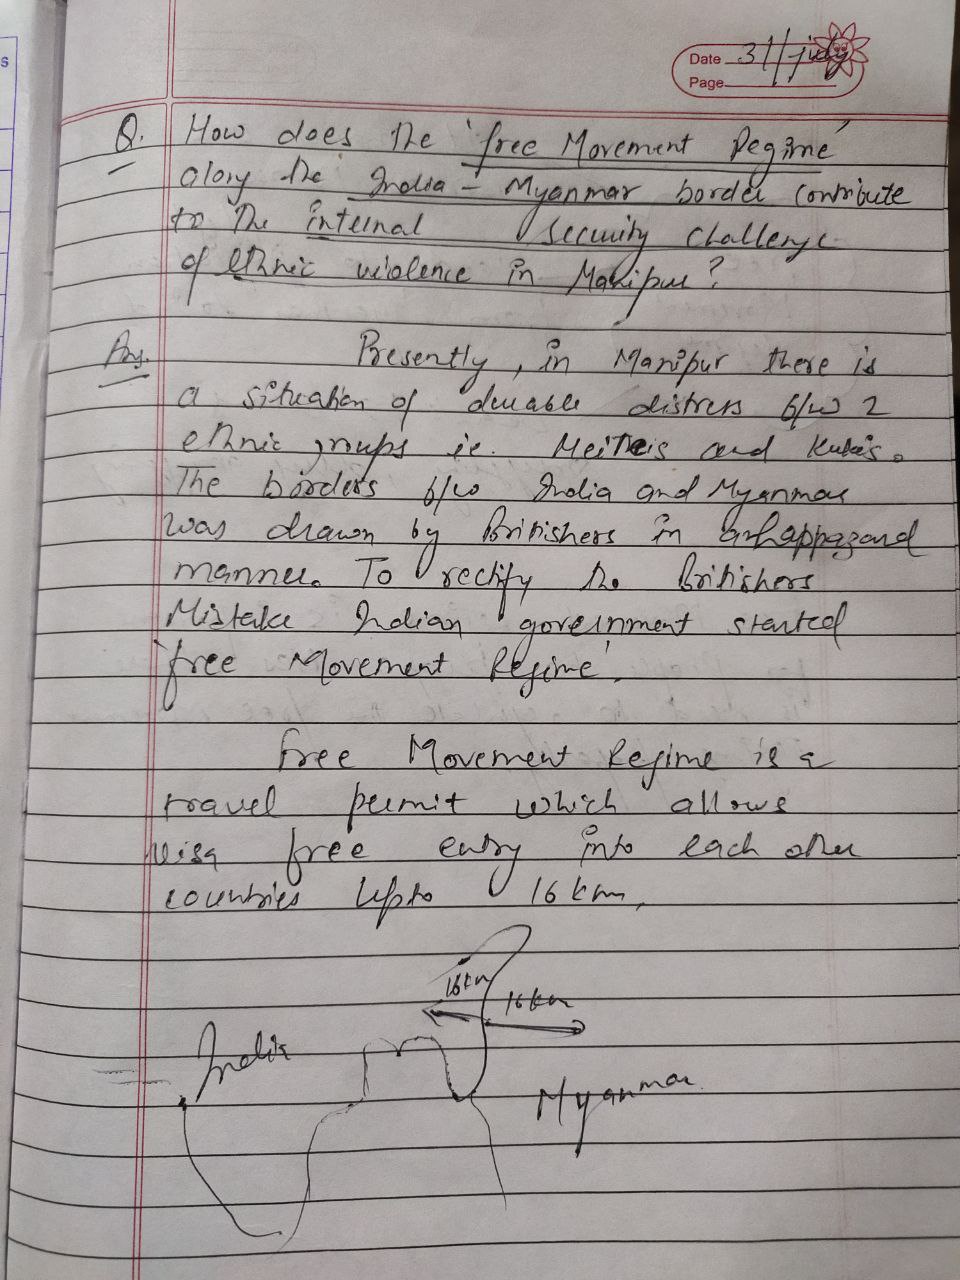 s
Date 31/july
Page
Q. How does the 'free Movement Regime'
along the India - Myanmar border contribute
to the internal security challenge
of ethnic violence in Manipur?
Ans. Presently, in Manipur there is
a situation of distress b/w 2
ethnic groups ie. Meiteis and Kukis.
The borders b/w India and Myanmar
was drawn by Britishers in
manner. To rectify the Britishers
Mistake Indian government started
'free Movement Regime'.
Free Movement Regime is a
travel permit which allows
visa free entry into each other
countries upto 16 km.
16km
16km
India
Myanmar